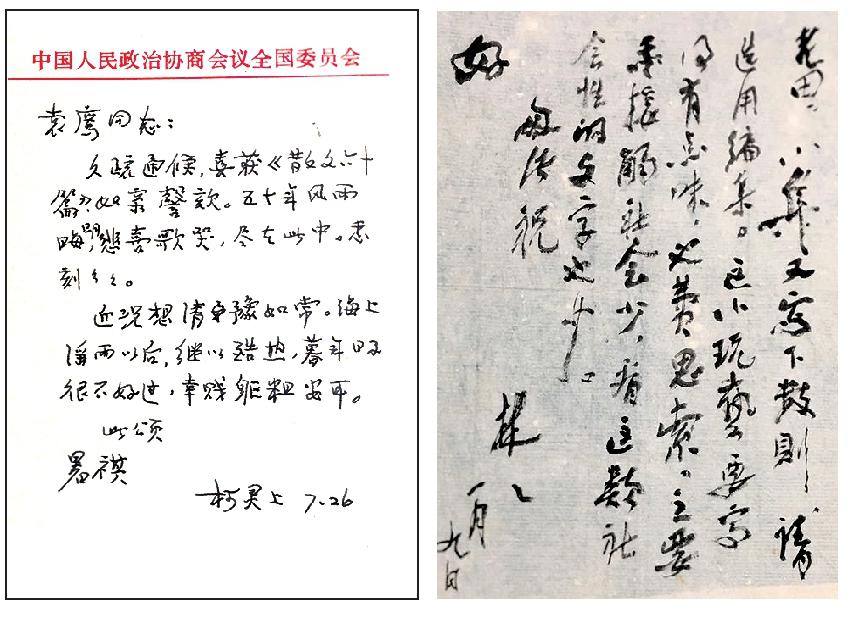 中国人民政治协商会议全国委员会
袁鹰同志：
久疏通候，喜获《散文六十
篇》，如亲謦欬。五十年风雨
晦明，悲喜歌哭，尽在此中。
刻々。
近况想清豫如常。海上
淫雨以后，继以酷热，暮年
很不好过，幸贱躯粗安耳。
此颂
暑祺
柯灵上 7.26
老田：小集又写下数则，请
选用编集。这小玩艺要写
得有点味，也费思索。主要
是接触社会少，看这类社
会性的文字也少。
匆匆祝
好
林
一月
九日